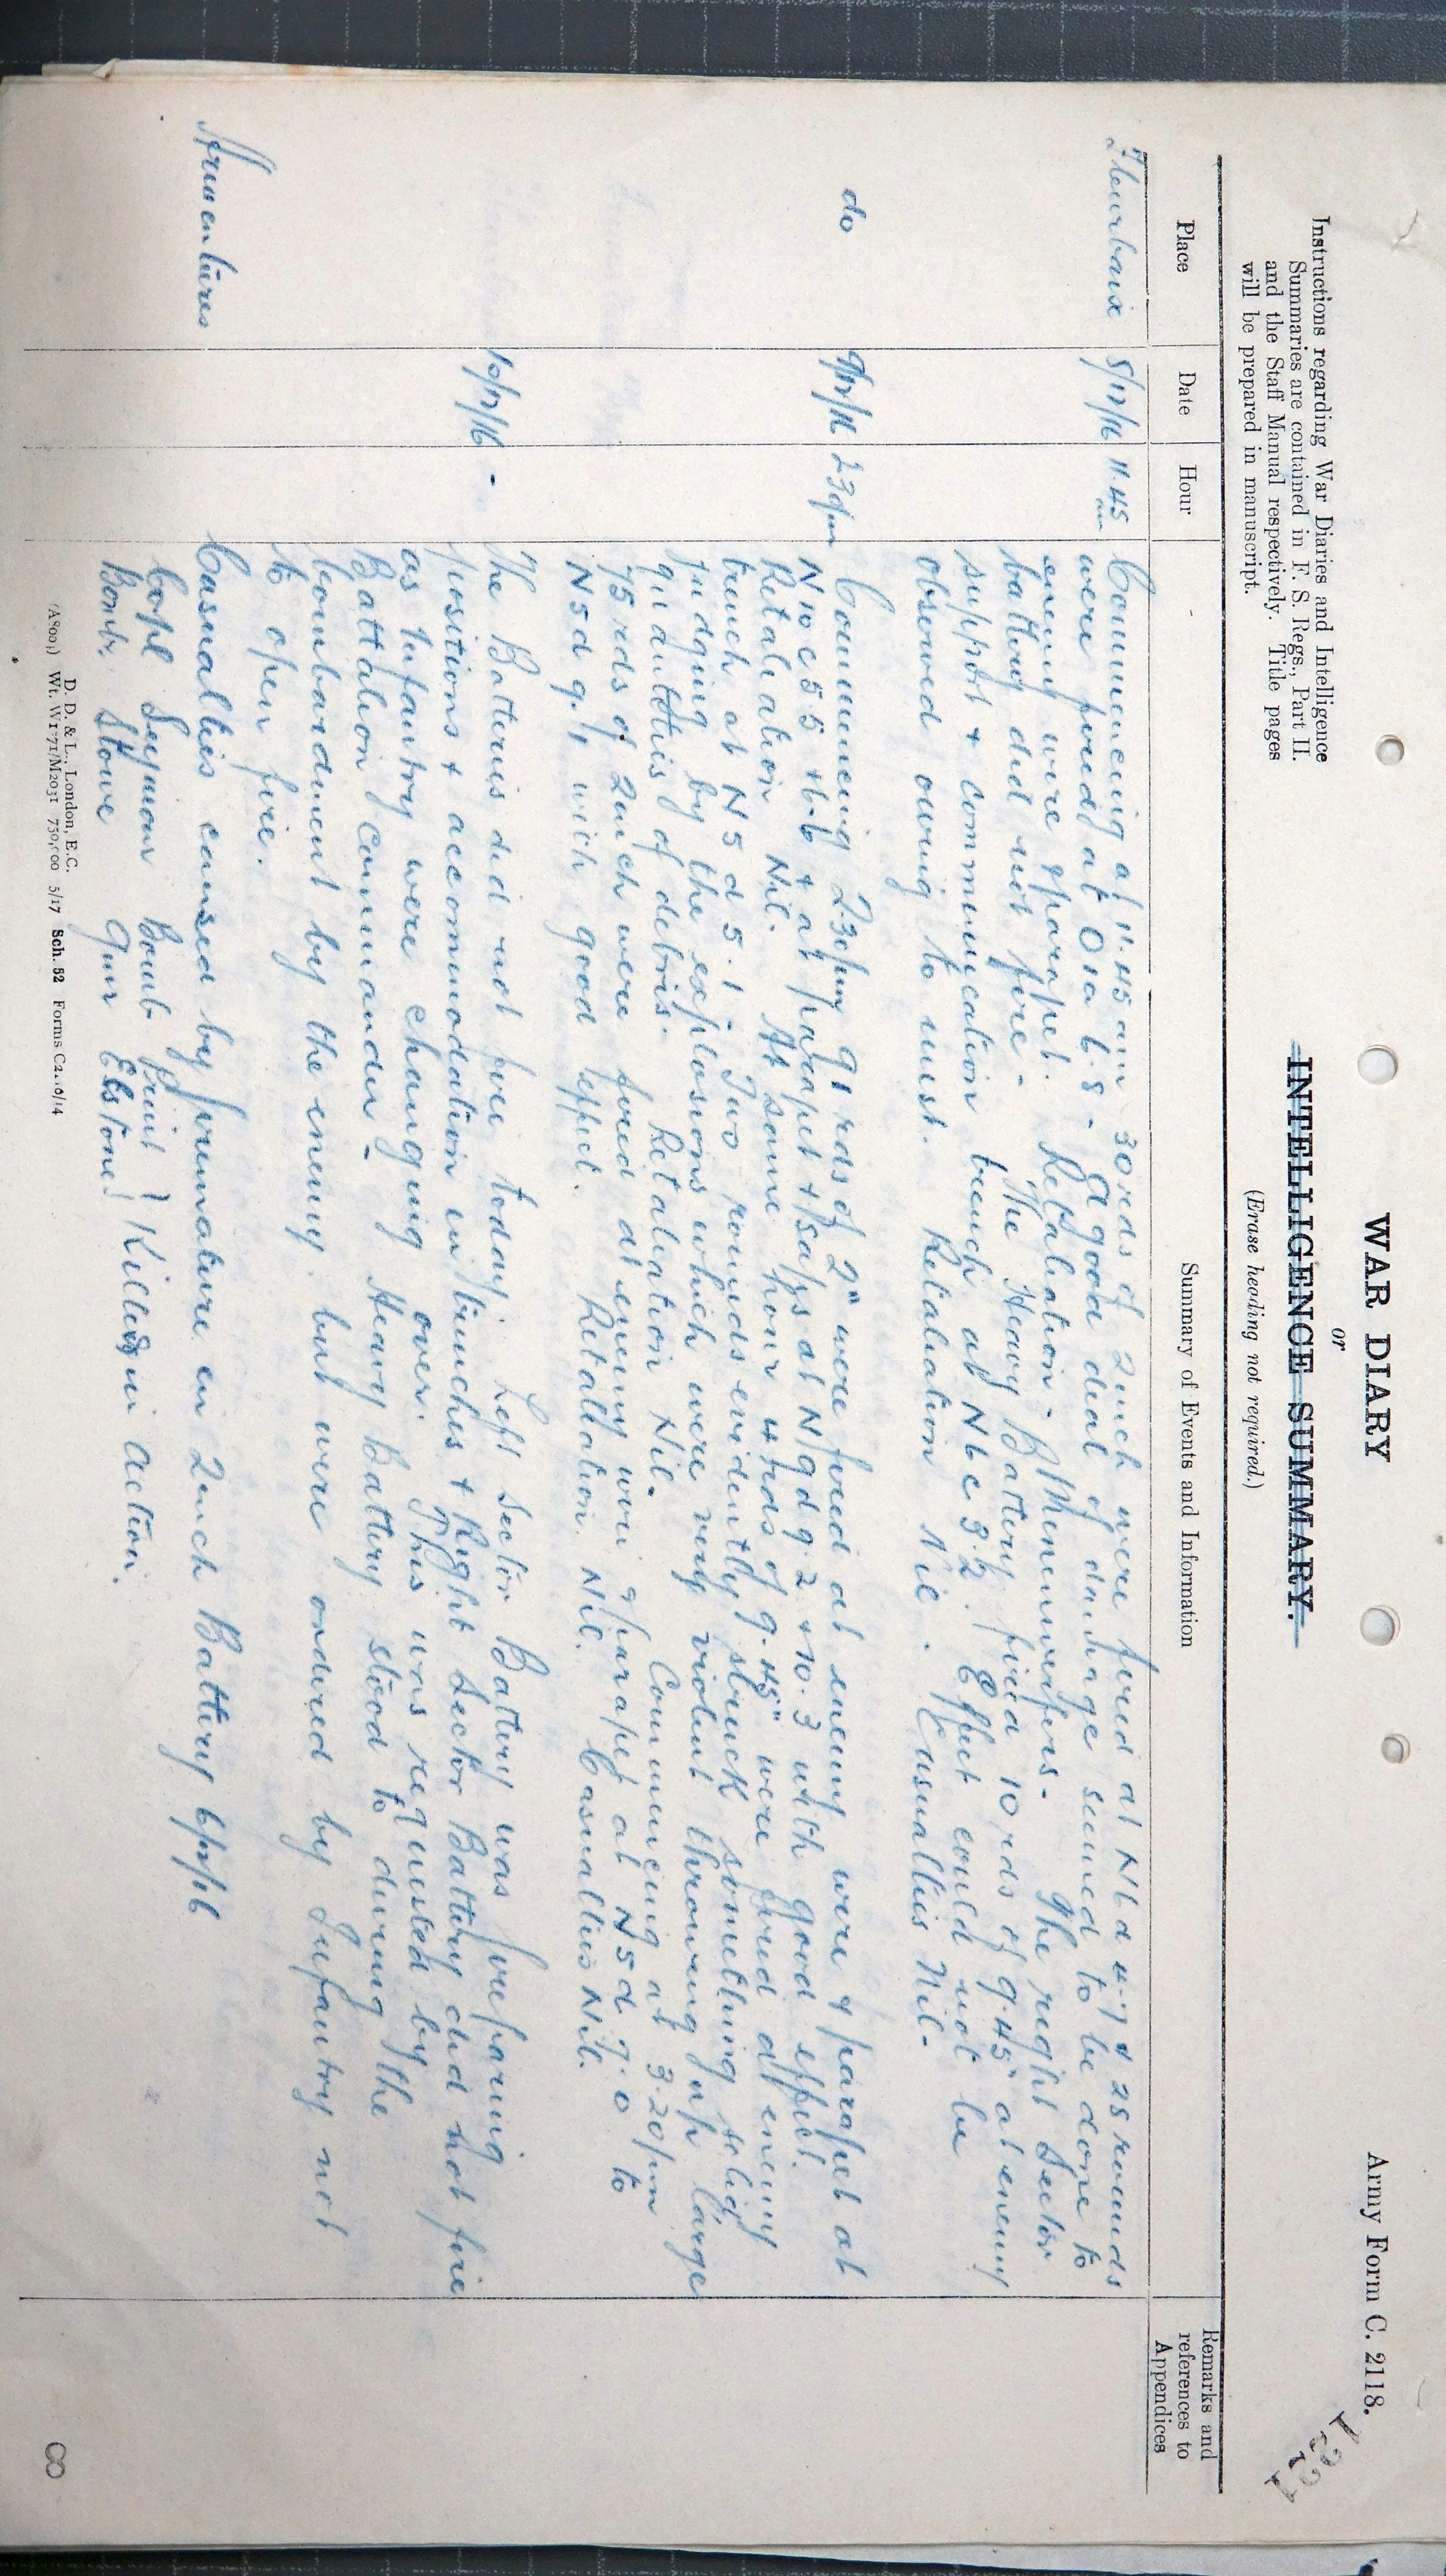 Army Form C. 2118.
WAR DIARY
or
INTELLIGENCE SUMMARY.
(Erase heading not required.)
Instructions regarding War Diaries and Intelligence
Summaries are contained in F. S. Regs., Part II.
and the Staff Manual respectively. Title pages
will be prepared in manuscript.
Place Date Hour Summary of Events and Information Remarks and references to Appendices
Fleurbaix 8/12/16 11.45 am Commencing at 11.45 am 30 rds of 2 inch were fired at N6 d 4.7 & 28 rounds
were fired at O1a 6.8 - A good deal of damage seemed to be done to
enemy wire & parapet. Retaliation - 13 Minenwerfers - The right Sector
battery did not fire - The Heavy Battery fired 10 rds of 9.45" at enemy
support & communication trench at N6 c 3.2. Effect could not be
observed owing to mist. Retaliation Nil. Casualties Nil -
do 9/12/16 2 30pm Commencing 2 30pm 91 rds of 2" were fired at enemy wire & parapet at
N10 c 5 5 to 6.6 & at parapet & saps at N9d 9.2 & 10.3 with good effect.
Retaliation Nil. At same hour 4 rds of 9.45" were fired at enemy
trench at N5 d 5.1 - Two rounds evidently struck something solid
judging by the explosions which were very violent throwing up large
quantities of debris. Retaliation Nil. Commencing at 3.20pm
75 rds of 2 inch were fired at enemy wire & parapet at N5 d 9.0 to
N5 d 9.1 with good effect. Retaliation Nil. Casualties Nil.
10/12/16 - The Batteries did not fire today. Left Sector Battery was preparing
positions & accommodation in trenches & Right Sector Battery did not fire
as Infantry were changing over. This was requested by the
Battalion Commander - Heavy Battery stood to during the
bombardment by the enemy but were ordered by Infantry not
to open fire.
Armentieres Casualties caused by premature in 2 inch Battery 6/12/16
Corpl Seymour Bomb
Bombr. Stowe Gnr Elstone } Killed in Action.
D. D. & L., London, E.C.
(A8001) Wt. W1771/M2031 750,000 5/17 Sch. 52 Forms C2118/14
8